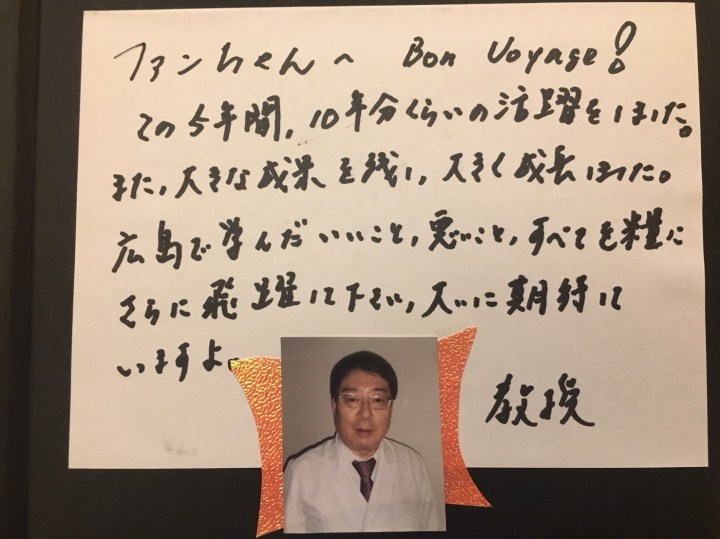 ファンちゃんへ Bon Voyage!
この5年間、10年分くらいの活躍をしました。
また、大きな成果を残し、大きく成長しました。
広島で学んだいいこと、悪いこと、すべてを糧に
さらに飛躍して下さい、大いに期待して
いますよ。
教授